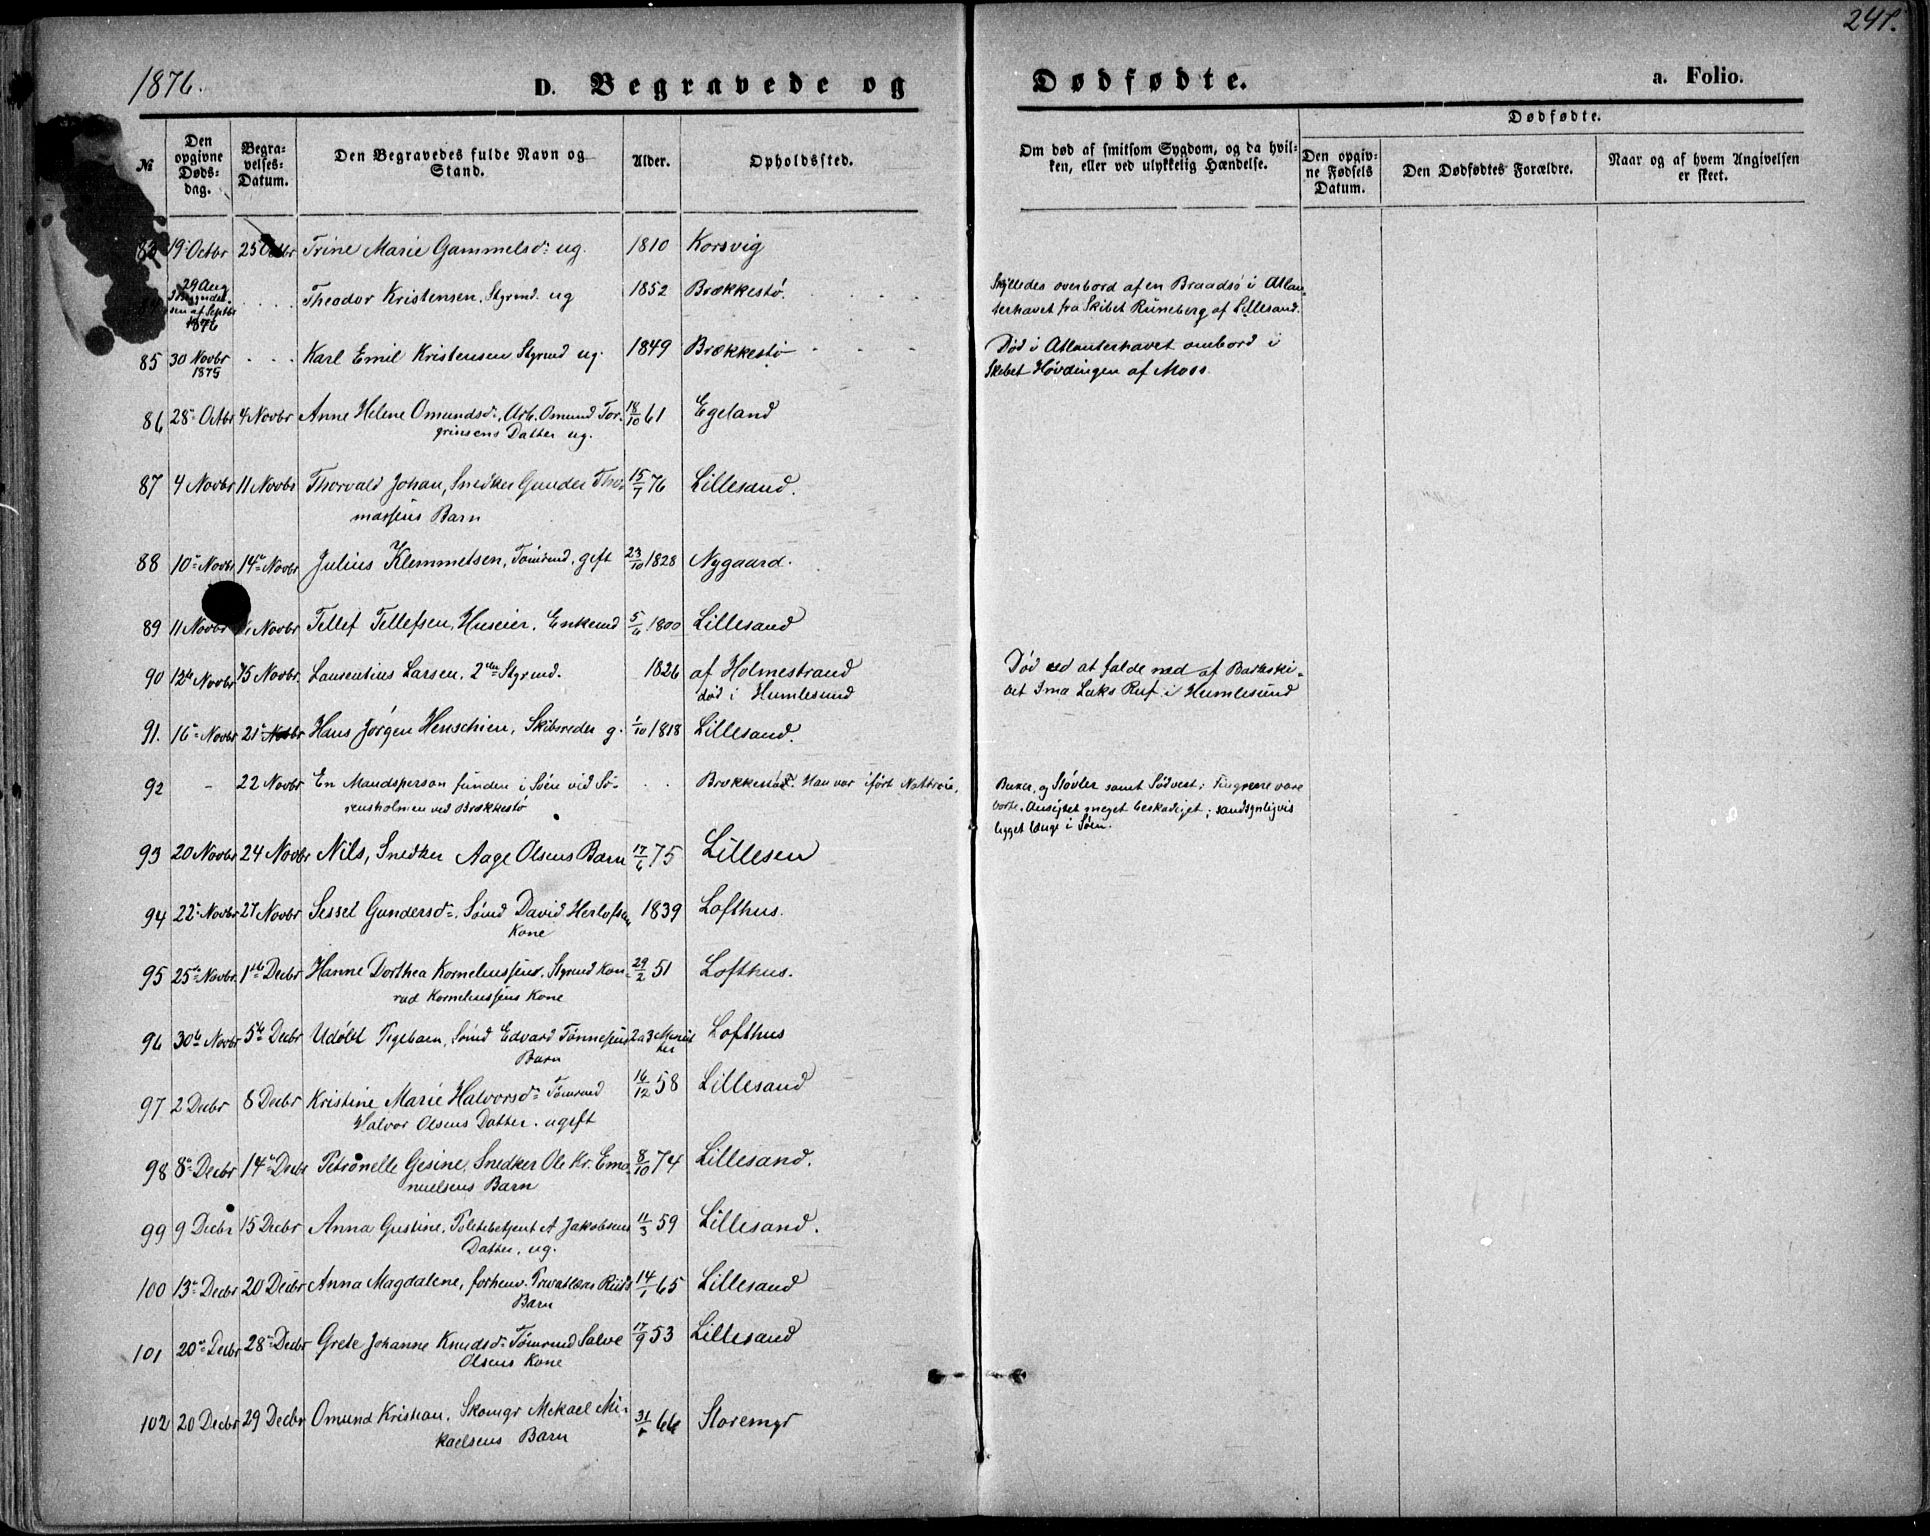 241.
1876.
D. Begravede og Dødfødte. a. Folio.
№
Den opgivne Døds-dag.
Begra-velses-Datum.
Den Begravedes fulde Navn og Stand.
Alder.
Opholdssted.
Om død af smitsom Sygdom, og da hvil-ken, eller ved ulykkelig Hændelse.
Dødfødte.
Den opgiv-ne Fødsels Datum.
Den Dødfødtes Forældre.
Naar og af hvem Angivelsen er skeet.
83 19 Octbr 25 Octbr Trine Marie Gammelsd: ug. 1810 Korsvig
29 Aug
Theodor Kristensen, Styrmd. ug 1852 Brækkestø. Skylledes overbord af en Braadsø i Atlan-
sen af Septbr
1876
terhavet fra Skibet Runeberg af Lillesand.
85 30 Novbr Karl Emil Kristensen Styrmd ug. 1849 Brækkestø Død i Atlanterhavet ombord i
1875
Skibet Høvdingen af Moss.
86 28 Octbr 4 Novbr Anne Helene Omundsd:, Arb. Omund Tor- 18/10 61 Egeland
grinsens Datter ug.
87 4 Novbr 11 Novbr Thorvald Johan, Snedker Gunder Tho- 15/7 76 Lillesand.
massens Barn
88 10 Novbr 14 Novbr Julius Klemmetsen, Tømrmd, gift 23/10 1828 Nygaard.
89 11 Novbr Novbr Tellef Tellefsen, Huseier, Enkemd 5/6 1800 Lillesand
90 12te Novbr 15 Novbr. Laurentius Larsen, 2den Styrmd. 1826 af Holmestrand Død ved at falde ned af Barkski-
død i Humlesund
bet Ima Luks Ruf i Humlesund
91. 16 Novbr 21 Novbr Hans Jørgen Henschien, Skibsreder g. 1/10 1818 Lillesand.
92 - 22 Novbr En Mandsperson funden i Søen vid Sø- Brækkestø. Han var iført Nattroie, Buxer, og Støvler samt Sydvest; Fingrene vare
rensholmen ved Brækkestø
borte, Ansigtet meget beskadiget; sandsynligvis
ligget længe i Søen.
93 20 Novbr 24 Novbr Nils, Snedker Aage Olsens Barn 17/6 75 Lillesen
94 22 Novbr 27 Novbr Sessel Gundersd:, Sømd David Herlofsen 1839 Lofthus.
Kone
95 25te Novbr. 1ste Decbr Hanne Dorthea Korneliussen, Styrmd Kon- 29/2 51 Lofthus.
rad Korneliussens Kone
96 30te Novbr 5te Decbr Udøbt Pigebarn, Sømd Edvard Tønnesens 2 a 3 Minut Lofthus
Barn
ter
97 2 Decbr 8 Decbr Kristine Marie Halvorsd: Tømrmd 16/12 58 Lillesand
Halvor Olsens Datter. ugift
98 8 Decbr 14 Decbr Petronelle Gesine, Snedker Ole Kr. Ema- 8/10 74 Lillesand.
nuelsens Barn
99 9 Decbr 15 Decbr Anna Gustine, Politibetjent A Jakobsens 11/3 59 Lillesand.
Datter, ug.
100 13 Decbr 20 Decbr Anna Magdalene, forhenv. Privatlærer Riis's 14/1 65 Lillesand
Barn
101 20 Decbr 28 Decbr Grete Johanne Knudsd: Tømrmd Salve 17/9 53 Lillesand
Olsens Kone
102 20 Decbr 29 Decbr Omund Kristian, Skomgr Mekael Mi- 66 Storemyr
kaelsens Barn